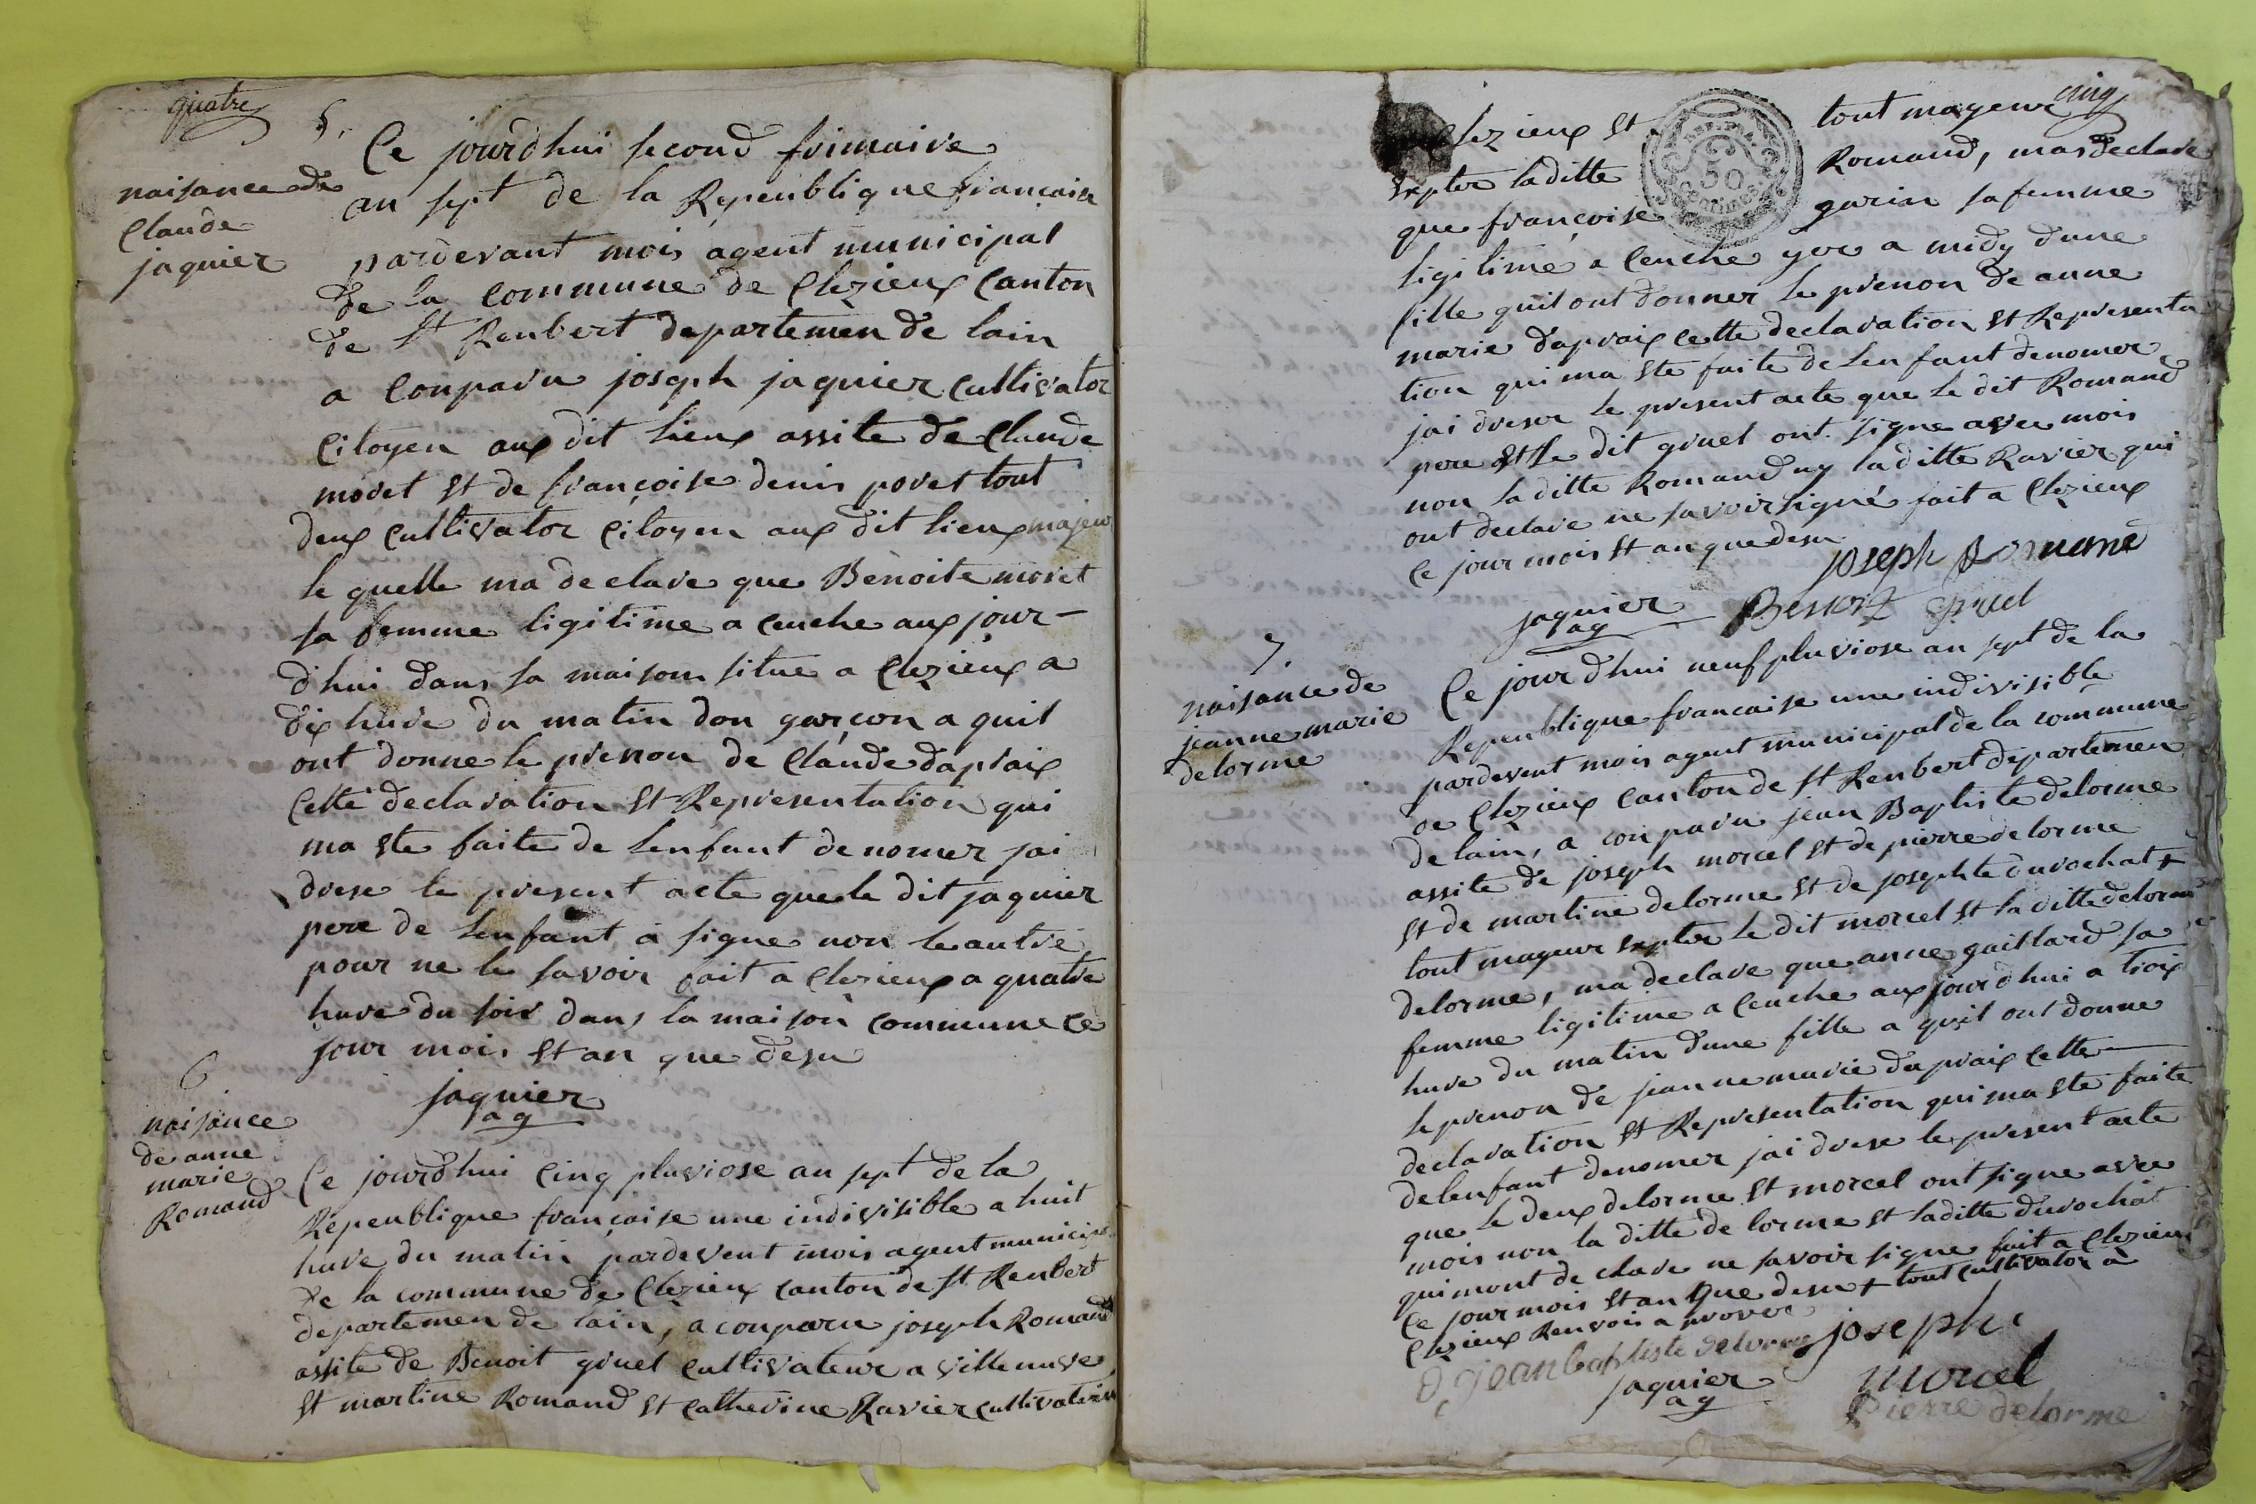 quatre
5.
naisance de
Claude
jaquier
Ce jourdhui second frimaire
an sept de la Repeublique françaisse
pardevant mois agent municipal
de la commune de Clezieux Canton
de st Renbert departemen de lain
a conparu joseph jaquier Cultivator
Citoyen aux dit lieux assite de Claude
moret et de françoise denis poret tout
deux Cultivator Citoyen aux dit lieux majeur
le quelle ma declare que Benoite moret
sa femme ligitime a couche aux jour-
dhui dans sa maison situe a Clezieux a
dix hure du matin don garçon a quil
ont donne le prenon de Claude dapraix
Cette declaration et Representation qui
ma ete faite de lenfant denomer jai
drese le present acte que le dit jaquier
pere de lenfant a signe non le autre
pour ne le savoir fait a Clezieux a quatre
hure du soir dans la maison commune ce
jour mois et an que desu
jaquier
ag
6
naisance
de anne
marie
Romand
Ce jourdhui Cinq pluviose an sept de la
Repeublique française une indivisible a huit
hure du matin pardevent mois agent municipal
de la commune de Clezieux canton de st Renbert
departemen de lain, a conparu joseph Romand
assite de Benoit gruel cultivateur a villenuve
et martine Romand et catherine Ravier cultivatrice
cinq
Clezieux et tout mageur
septer laditte Romand, mas declare
que françoise garian sa femme
ligitime a couche yer a midy dune
fille quil ont donner le prenon de anne
marie dapraix cette declaration et Representa
tion qui ma ete faite de lenfant denomer
jai dreser le present acte que le dit Romand
pere et le dit gruel ont signe avec mois
non laditte Romand ny laditte Ravier qui
ont declare ne savoir signé fait a Clezieux
ce jour mois et an que desu
joseph Romand
jaquier Benoit gruel
ag
7.
naisance de
jeanne marie
delorme
Ce jourdhui neuf pluviose an sept de la
Repeublique francaise une indivisible
pardevent mois agent municipal de la commune
de Clezieux canton de st Renbert departemen
de lain, a conparu jean Baptiste delorme
assite de joseph morcel et de pierre delorme
et de martine delorme et de josephte durochat +
tout mageur septer le dit morcel et la ditte delorme
delorme, ma declare que anne gaillard sa
femme ligitime a couche aux jourdhui a trois
hure du matin dune fille a quil ont donne
le prenon de jeanne marie dapraix cette
declaration et Representation qui ma ete faite
de lenfant denomer jai drese le present acte
que le deux delorme et morcel ont signe avec
mois non la ditte de lorme et laditte durochat
qui mont declare ne savoir signe fait a Clezieux
ce jour mois et an que desu + tout cultivator à
Clezieux Renvois aprover
jean baptiste delorme joseph
jaquier morcel
ag pierre delorme
50
centimes